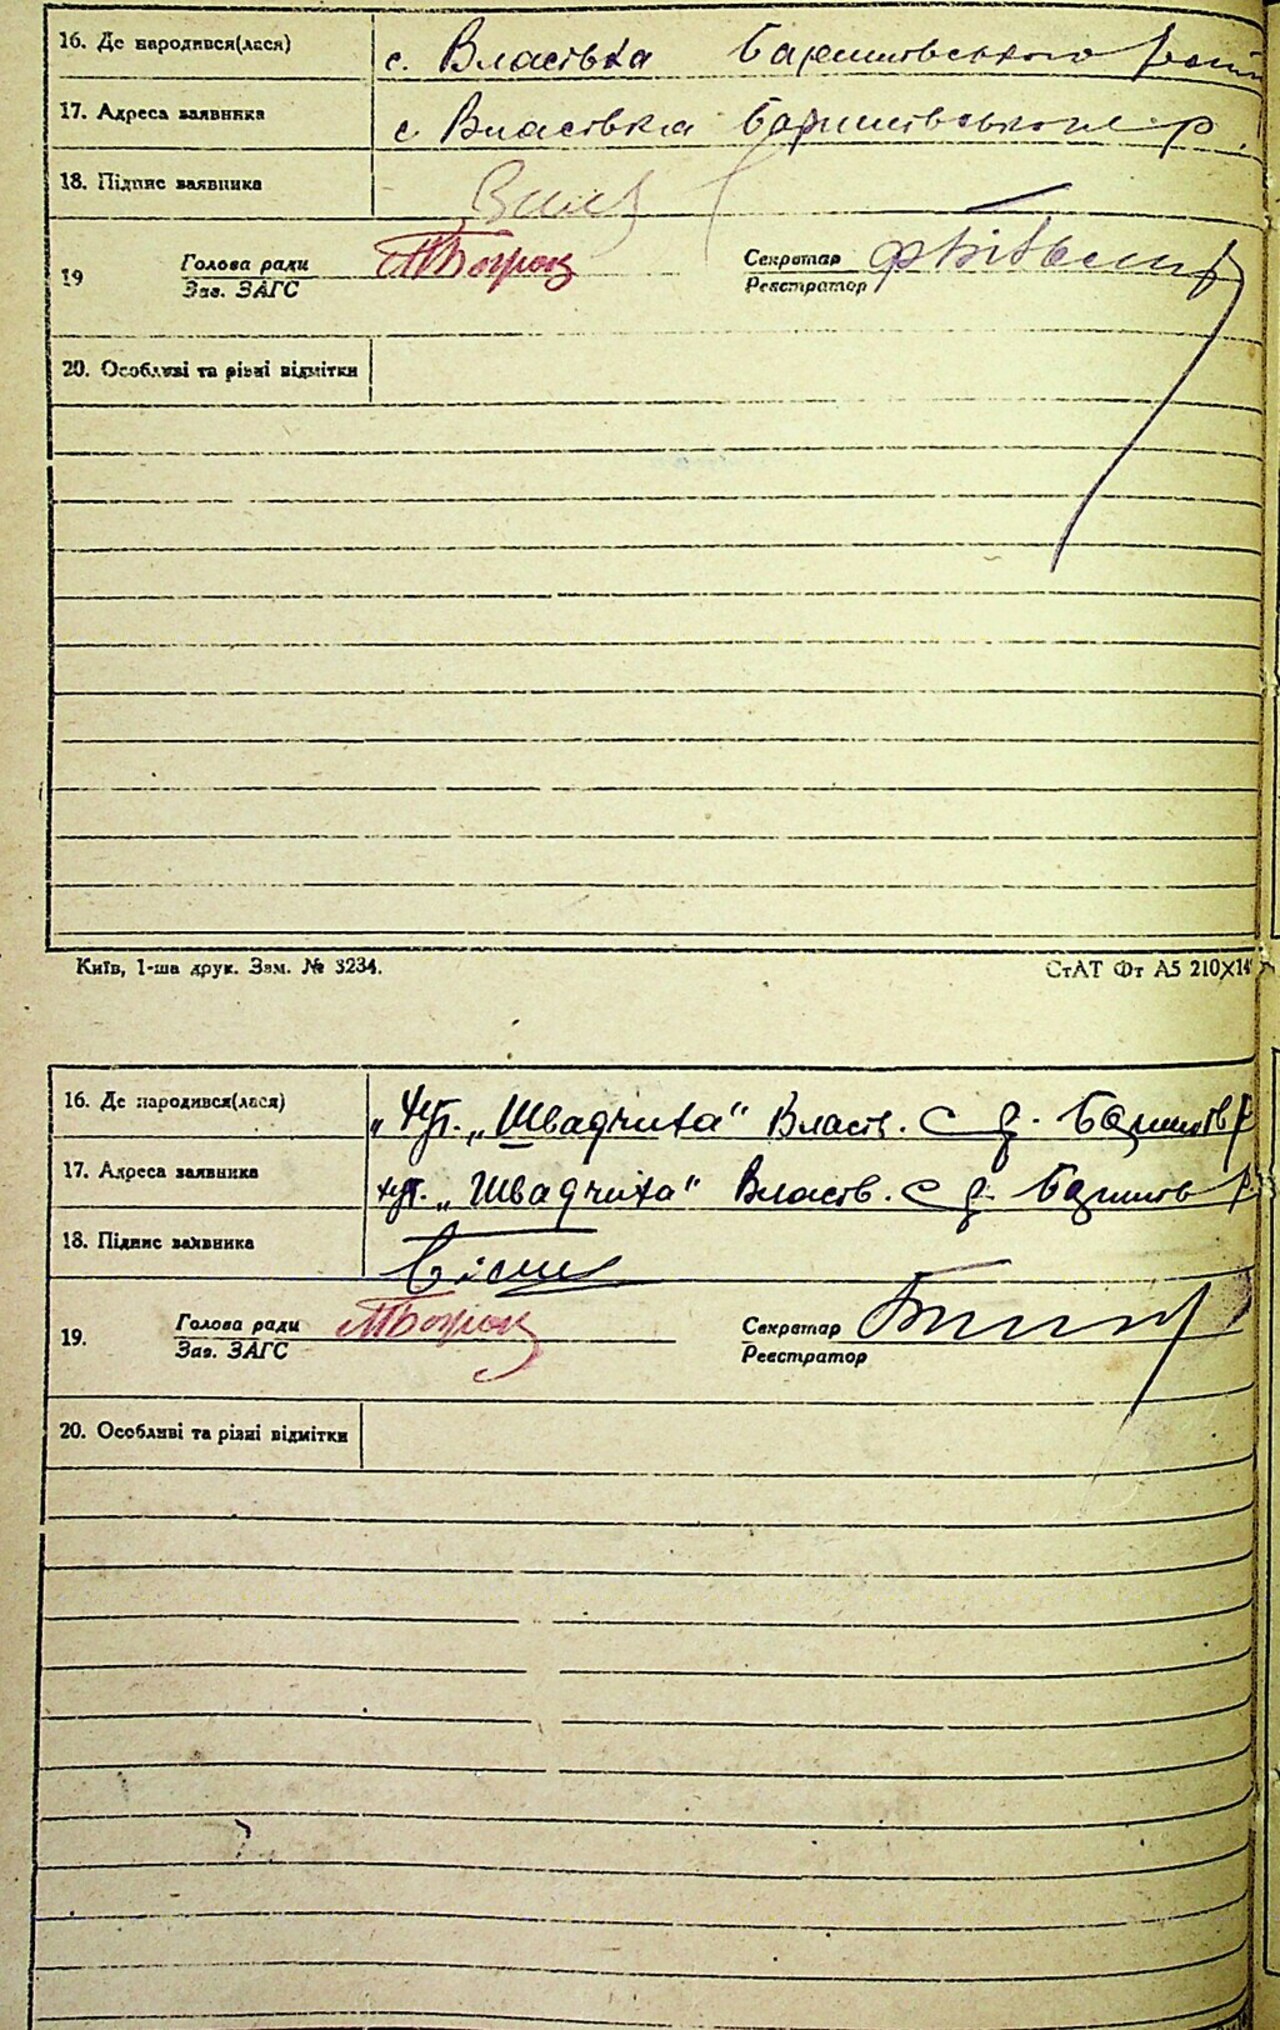 16. Де народився(лася) с. Власівка Баришівського
17. Адреса заявника с Власівка Баришівського р.
18. Підпис заявника
19 Голова ради Секретар
Зав. ЗАГС Реєстратор
20. Особливі та різні відмітки
Київ, 1-ша друк. Зам. № 3234. СтАТ Фт А5 210X14
16. Де народився(лася) „хут. „Швадчиха" Власів. с р. Баришів р
17. Адреса заявника хут. „Швадчиха" Власів. с р. Баришів р
18. Підпис заявника
19. Голова ради Секретар
Зав. ЗАГС Реєстратор
20. Особливі та різні відмітки